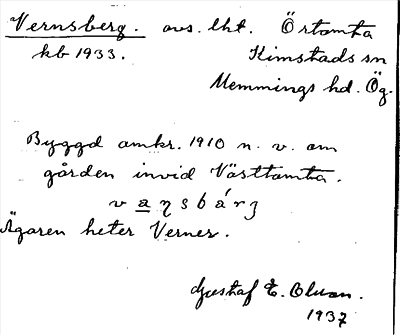 Vernsberg. avs. lht. Örtomta
kb 1933. Kimstads sn
Memmings hd. Ög.
Byggd omkr. 1910 n. v. om
gården invid Västtomta.
v a ƞ s b á r ȝ
Ägaren heter Verner.
Gustaf E. Olsson.
1937